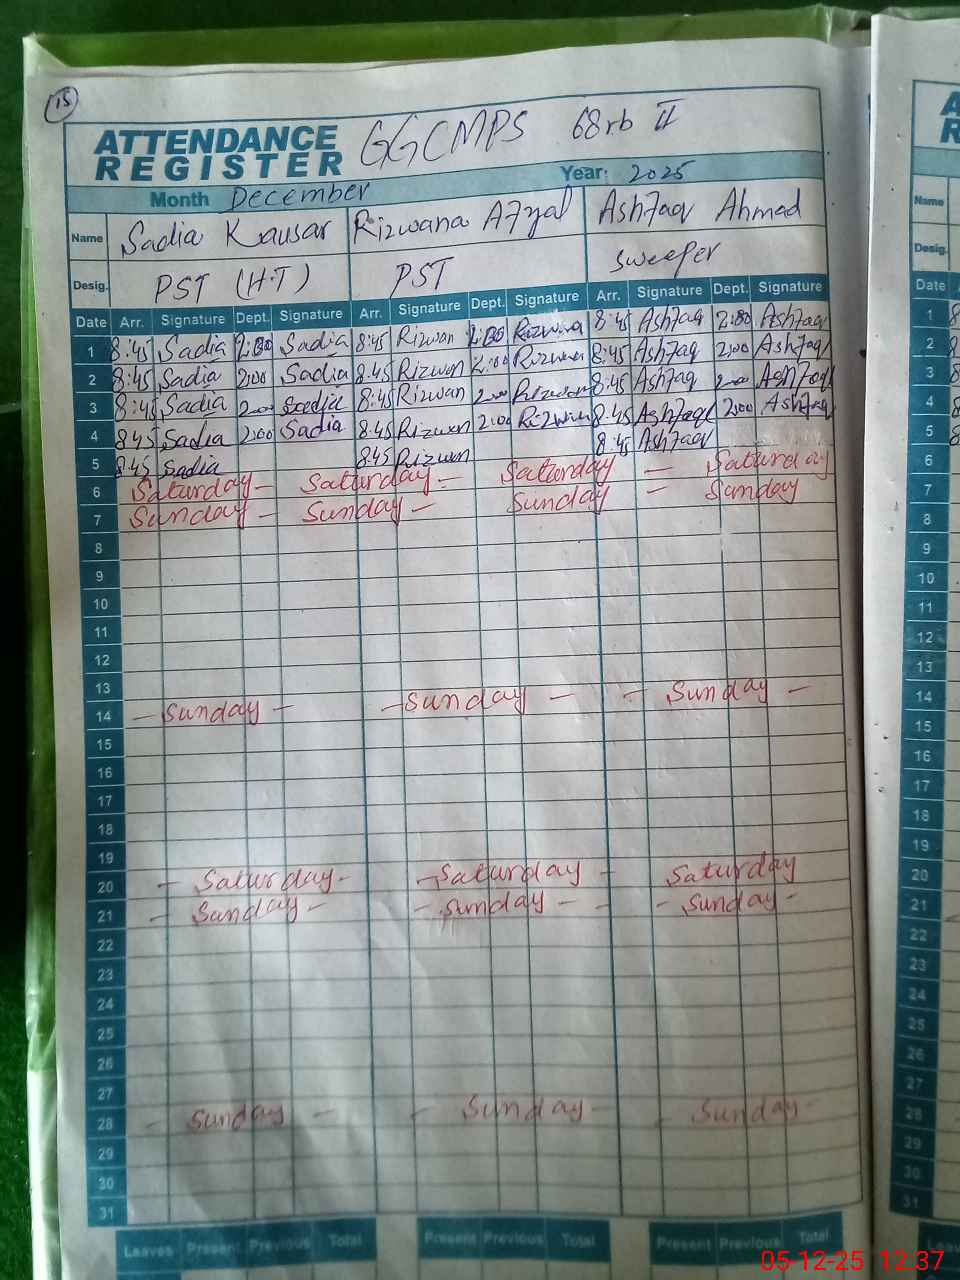 15
ATTENDANCE REGISTER GGCMPS 68rb II
Month December Year: 2025
Name Sadia Kausar Rizwana Afzal Ashfaq Ahmad
Desig. PST (H.T) PST Sweeper
Date Arr. Signature Dept. Signature Arr. Signature Dept. Signature Arr. Signature Dept. Signature
1 8:45 Sadia 2:00 Sadia 8:45 Rizwan 2:00 Rizwana 8:45 Ashfaq 2:00 Ashfaq
2 8:45 Sadia 2:00 Sadia 8:45 Rizwan 2:00 Rizwan 8:45 Ashfaq 2:00 Ashfaq
3 8:45 Sadia 2:00 Sadia 8:45 Rizwan 2:00 Rizwan 8:45 Ashfaq 2:00 Ashfaq
4 8:45 Sadia 2:00 Sadia 8:45 Rizwan 2:00 Rizwan 8:45 Ashfaq 2:00 Ashfaq
5 8:45 Sadia 8:45 Rizwan 8:45 Ashfaq
6 Saturday - Saturday - Saturday - Saturday
7 Sunday - Sunday - Sunday - Sunday
8
9
10
11
12
13
14 - Sunday - - Sunday - - Sunday -
15
16
17
18
19
20 - Saturday - - Saturday - Saturday
21 - Sunday - - Sunday - - - Sunday -
22
23
24
25
26
27
28 - Sunday - - Sunday - - Sunday -
29
30
31
Leaves Present Previous Total Present Previous Total Present Previous Total
Name
Desig.
Date
1
2
3
4
5
6
7
8
9
10
11
12
13
14
15
16
17
18
19
20
21
22
23
24
25
26
27
28
29
30
31
Leaves
05-12-25 12:37